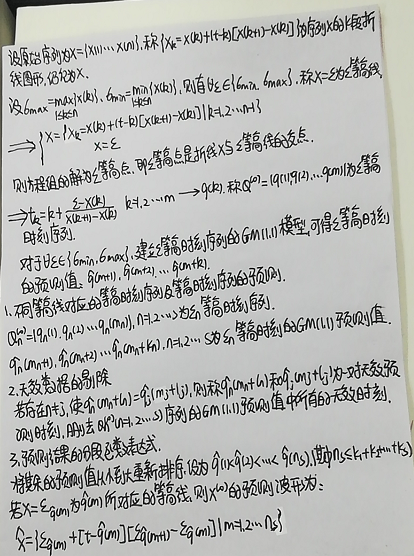 设原始序列为X={x(1)…x(n)}.称{Xk=x(k)+(t-k)[x(k+1)-x(k)]}为序列X的k段折
线图形,仍记为X.
设6max=max{x(k)}, 6min=min{x(k)}, 则有∀ξ∈{6min, 6max}.称X=ξ为ξ等高线
1≤k≤n 1≤k≤n
⇒ {X={Xk=x(k)+(t-k)[x(k+1)-x(k)]|k=1,2…n-1}
x=ξ
则方程组的解为ξ等高点.即ξ等高点是折线X与ξ等高线的交点.
⇒tk=k+ (ξ-x(k))/(x(k+1)-x(k)) k=1,2…m → q(k).称Q⁽⁰⁾={q(1),q(2),…q(m)}为ξ等高
时刻序列.
对于∀ξ∈{6min,6max},建立ξ等高时刻序列的GM(1,1)模型,可得ξ等高时刻
的预测值: q̂(m+1), q̂(m+2) … q̂(m+k).
1.不同等高线对应的等高时刻序列及等高时刻序列的预测.
Qn⁽⁰⁾={qn(1), qn(2)…qn(mn)}, n=1,2…s为ξn等高时刻序列.
q̂n(mn+1), q̂n(mn+2)…q̂n(mn+kn), n=1,2…s为ξn等高时刻的GM(1,1)预测值.
2.无效数据的剔除
若存在n≠j,使q̂n(mn+ln)=q̂j(mj+lj),则称q̂n(mn+ln)和q̂j(mj+lj)为一对无效预
测时刻,删去 (n=1,2…s)序列的GM(1,1)预测值中所有的无效时刻.
3.预测结果的分段函数表达式.
将剩余的预测值从小到大重新排序.设为q̂(1)<q̂(2)<…<q̂(ns),(其中ns≤k1+k2+…+ks)
若X=ξq̂(m)为q̂(m)所对应的等高线,则X⁽⁰⁾的预测波形为:
X̂={ξq̂(m)+[t-q̂(m)][ξq̂(m+1)-ξq̂(m)]|m=1,2…ns}